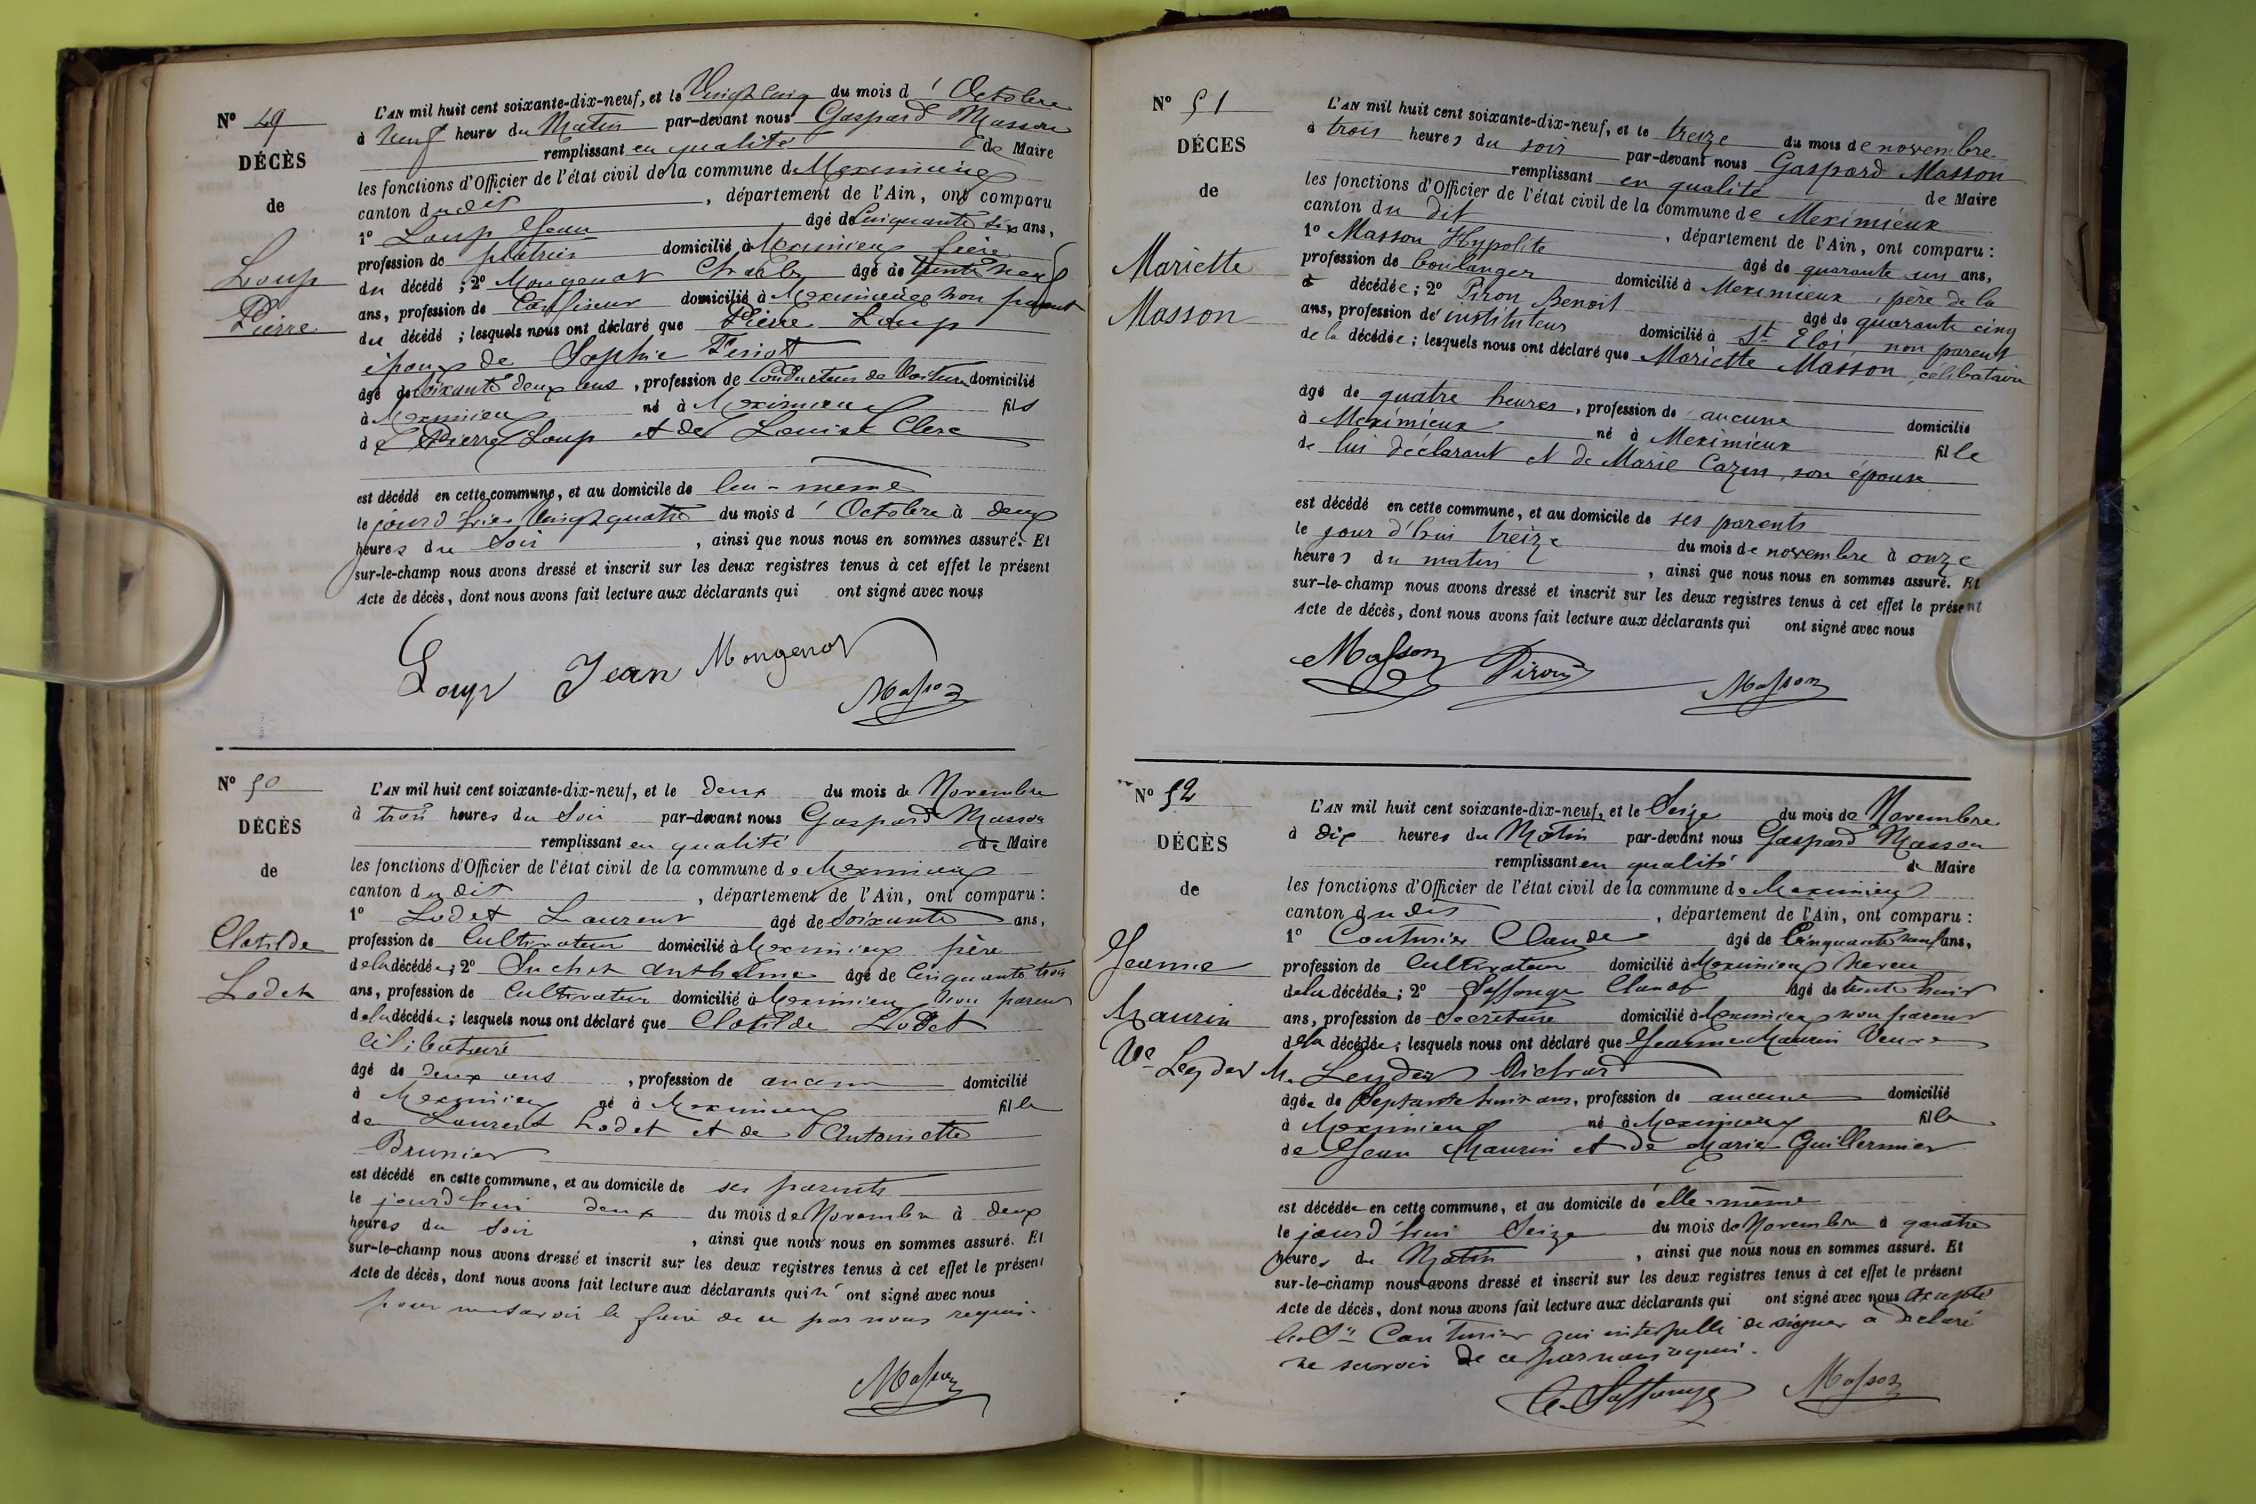 N° 49
DÉCÈS
de
Loup
Pierre
L'AN mil huit cent soixante-dix-neuf, et le Vingt cinq du mois d' Octobre
à neuf heures du Matin par-devant nous Gaspard Masson
remplissant en qualité de Maire
les fonctions d'Officier de l'état civil de la commune de Meximieux
canton du dit, département de l'Ain, ont comparu
1° Loup Jean âgé de Cinquante six ans,
profession de platrier domicilié à Meximieux frère
du décédé ; 2° Mongenot Charles âgé de trente neuf
ans, profession de domicilié à Meximieux non parent
du décédé ; lesquels nous ont déclaré que Pierre Loup
époux de Sophie
âgé de soixante deux ans, profession de Conducteur de Voitures domicilié
à Meximieux né à Meximieux fils
de Pierre Loup et de Louise Clerc
est décédé en cette commune, et au domicile de lui-même
le jourd'hier Vingt quatre du mois d' Octobre à deux
heures du Soir, ainsi que nous nous en sommes assuré. Et
sur-le-champ nous avons dressé et inscrit sur les deux registres tenus à cet effet le présent
Acte de décès, dont nous avons fait lecture aux déclarants qui ont signé avec nous
Loup Jean Mongenot
Masson
N° 50
DÉCÈS
de
Clotilde
Lodet
L'AN mil huit cent soixante-dix-neuf, et le deux du mois de Novembre
à trois heures du Soir par-devant nous Gaspard Masson
remplissant en qualité de Maire
les fonctions d'Officier de l'état civil de la commune de Meximieux
canton du dit, département de l'Ain, ont comparu :
1° Lodet Laurent âgé de soixante ans,
profession de Cultivateur domicilié à Meximieux père
de la décédée ; 2° Suchet Anthelme âgé de Cinquante trois
ans, profession de Cultivateur domicilié à Meximieux non parent
de la décédée ; lesquels nous ont déclaré que Clotilde Lodet
célibataire
âgé de deux ans, profession de aucune domicilié
à Meximieux né à Meximieux fille
de Laurent Lodet et de Antoinette
Brunier
est décédé en cette commune, et au domicile de ses parents
le jourd'hui deux du mois de Novembre à deux
heures du Soir, ainsi que nous nous en sommes assuré. Et
sur-le-champ nous avons dressé et inscrit sur les deux registres tenus à cet effet le présent
Acte de décès, dont nous avons fait lecture aux déclarants qui n' ont signé avec nous
pour ne savoir le faire de ce par nous requis.
Masson
N° 51
DÉCÈS
de
Mariette
Masson
L'AN mil huit cent soixante-dix-neuf, et le treize du mois de novembre
à trois heures du soir par-devant nous Gaspard Masson
remplissant en qualité de Maire
les fonctions d'Officier de l'état civil de la commune de Meximieux
canton du dit, département de l'Ain, ont comparu :
1° Masson Hypolite âgé de quarante un ans,
profession de boulanger domicilié à Meximieux, père de la
décédée ; 2° Piron Benoit âgé de quarante cinq
ans, profession de instituteur domicilié à St Eloi, non parent
de la décédée ; lesquels nous ont déclaré que Mariette Masson, célibataire
âgé de quatre heures, profession de aucune domicilié
à Meximieux né à Meximieux fille
de lui déclarant et de Marie Cazin, son épouse
est décédé en cette commune, et au domicile de ses parents
le jour d'hui treize du mois de novembre à onze
heures du matin, ainsi que nous nous en sommes assuré. Et
sur-le-champ nous avons dressé et inscrit sur les deux registres tenus à cet effet le présent
Acte de décès, dont nous avons fait lecture aux déclarants qui ont signé avec nous
Masson Piron Masson
N° 52
DÉCÈS
de
Jeanne
Maurin
Ve Leyder
L'AN mil huit cent soixante-dix-neuf, et le Seize du mois de Novembre
à dix heures du Matin par-devant nous Gaspard Masson
remplissant en qualité de Maire
les fonctions d'Officier de l'état civil de la commune de Meximieux
canton du dit, département de l'Ain, ont comparu :
1° Couturier Claude âgé de Cinquante neuf ans,
profession de Cultivateur domicilié à Meximieux Neveu
de la décédée ; 2° Claude âgé de trente huit
ans, profession de Secrétaire domicilié à Meximieux non parent
de la décédée ; lesquels nous ont déclaré que Jeanne Maurin Veuve
M. Leyder Richard
âgée de Septante huit ans, profession de aucune domicilié
à Meximieux né à Meximieux fille
de Jean Maurin et de Marie Guillermier
est décédée en cette commune, et au domicile de elle-même
le jourd'hui Seize du mois de Novembre à quatre
heures du Matin, ainsi que nous nous en sommes assuré. Et
sur-le-champ nous avons dressé et inscrit sur les deux registres tenus à cet effet le présent
Acte de décès, dont nous avons fait lecture aux déclarants qui ont signé avec nous excepté
le Sr Couturier qui interpellé de signer a déclaré
ne savoir de ce par nous requis.
Masson